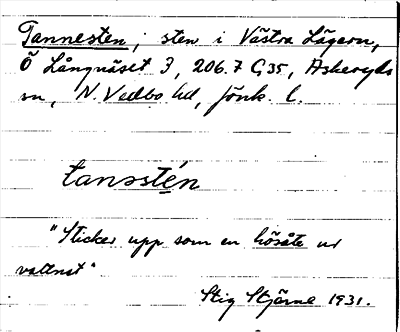 Tannesten; sten i Västra Lägern,
Ö Långnäset 3, 206.7 G35, Askeryds
sn, N. Vedbo hd, Jönk. l.
tansstén
"Sticker upp som en hösåte ur
vattnet"
Stig Stjärne 1931.